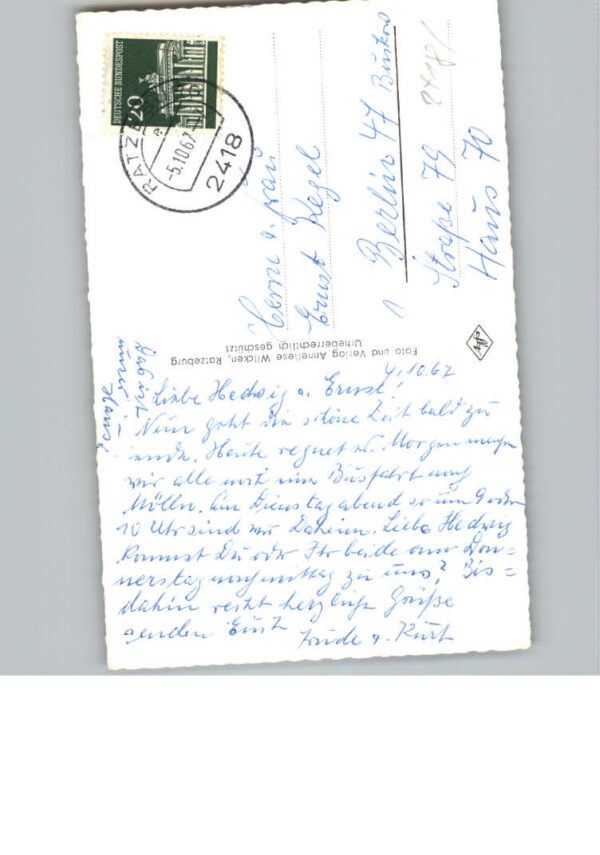 DEUTSCHE BUNDESPOST
20
RATZEBURG
-5.10.67
2418
Herrn u. Frau
Ernst Kegel
1 Berlin 47 Buckow
Straße 79
Haus 70
Foto und Verlag Anneliese Wilcken, Ratzeburg
Urheberrechtlich geschützt
Agfa
4.10.67
Liebe Hedwig u. Ernst!
Nun geht die schöne Zeit bald zu
ende. Heute regnet es. Morgen machen
wir alle noch eine Busfahrt nach
Mölln. Am Dienstag abend so um 9 oder
10 Uhr sind wir Daheim. Liebe Hedwig
kommst Du oder Ihr beide am Don=
nerstag nachmittag zu uns? Bis=
dahin recht herzliche Grüße
senden Euch Trude u. Kurt
unser Haus